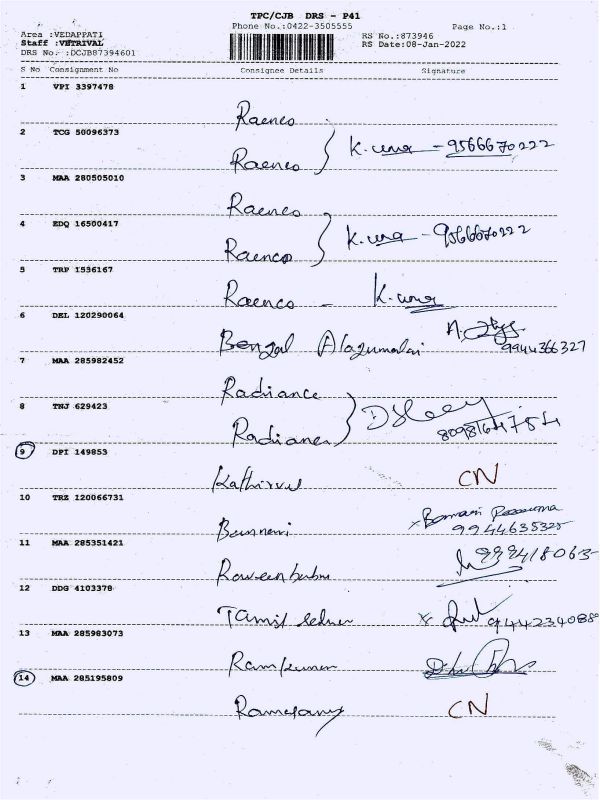 TPC/CJB DRS - P41
Phone No.:0422-3505555
Page No.:1
Area :VEDAPPATI
Staff :VETRIVAL
DRS No. :DCJB87394601
RS No.:873946
RS Date:08-Jan-2022
S No Consignment No Consignee Details Signature
1 VPI 3397478
Raenco
2 TCG 50096373
Raenco K. uma - 9566670222
3 MAA 280505010
Raenco
4 EDQ 16500417
Raenco K. uma - 9566670222
5 TRP 1536167
Raenco - K. uma
6 DEL 120290064
Bengal Alagumalai
9944366327
7 MAA 285982452
Radiance
8 TNJ 629423
Radiance
9 DPI 149853
Kathirvel CN
10 TRZ 120066731
9944635325
11 MAA 285351421
12 DDG 4103378
Tamil
13 MAA 285983073
Ramkumar
14 MAA 285195809
Ramasamy CN